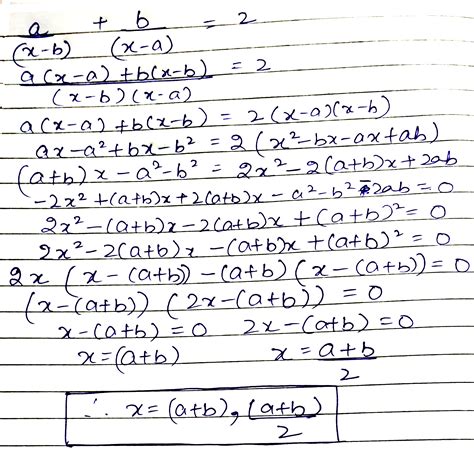 a/(x-b) + b/(x-a) = 2
a(x-a)+b(x-b)/(x-b)(x-a) = 2
a(x-a)+b(x-b) = 2(x-a)(x-b)
ax-a²+bx-b² = 2(x²-bx-ax+ab)
(a+b)x-a²-b² = 2x²-2(a+b)x+2ab
-2x²+(a+b)x+2(a+b)x-a²-b²-2ab=0
2x²-(a+b)x-2(a+b)x+(a+b)²=0
2x²-2(a+b)x-(a+b)x+(a+b)²=0
2x(x-(a+b))-(a+b)(x-(a+b))=0
(x-(a+b))(2x-(a+b))=0
x-(a+b)=0 2x-(a+b)=0
x=(a+b) x=a+b/2
∴ x=(a+b), (a+b)/2